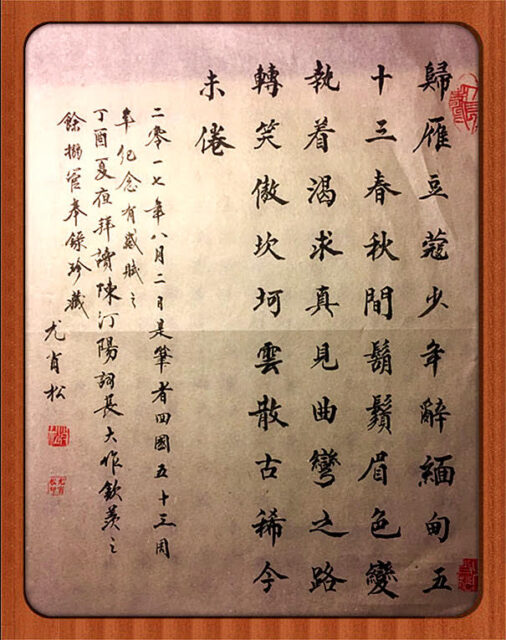 歸雁豆蔻少年辭緬甸五
十三春秋間鬍鬚眉色變
執着渴求真見曲彎之路
轉笑傲坎坷雲散古稀今
未倦
二零一七年八月二日是筆者回國五十三周
年紀念有感賦之
丁酉夏夜拜讀陳汀陽詞長大作欽羨之
餘搦管奉錄珍藏
尤肖松